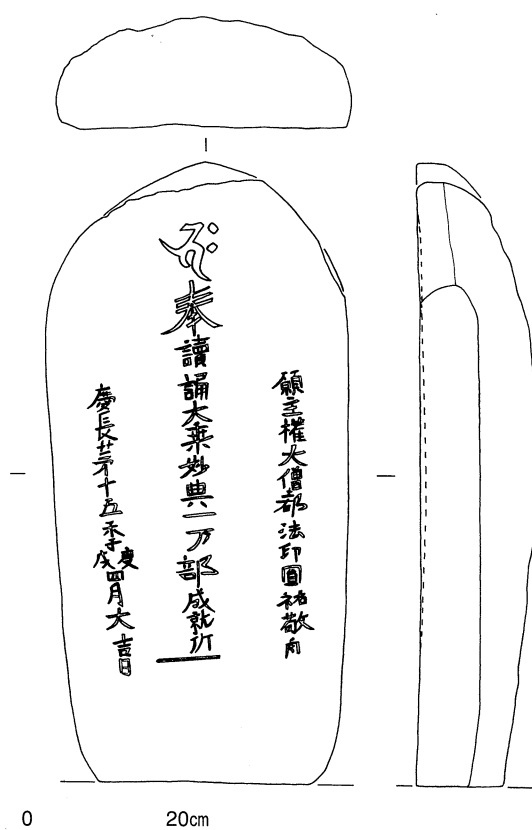 願主權大僧都法印圓祐敬白
奉讀誦大乗妙典一万部成就所
慶長苐十五季庚戌四月大吉日
0 20cm